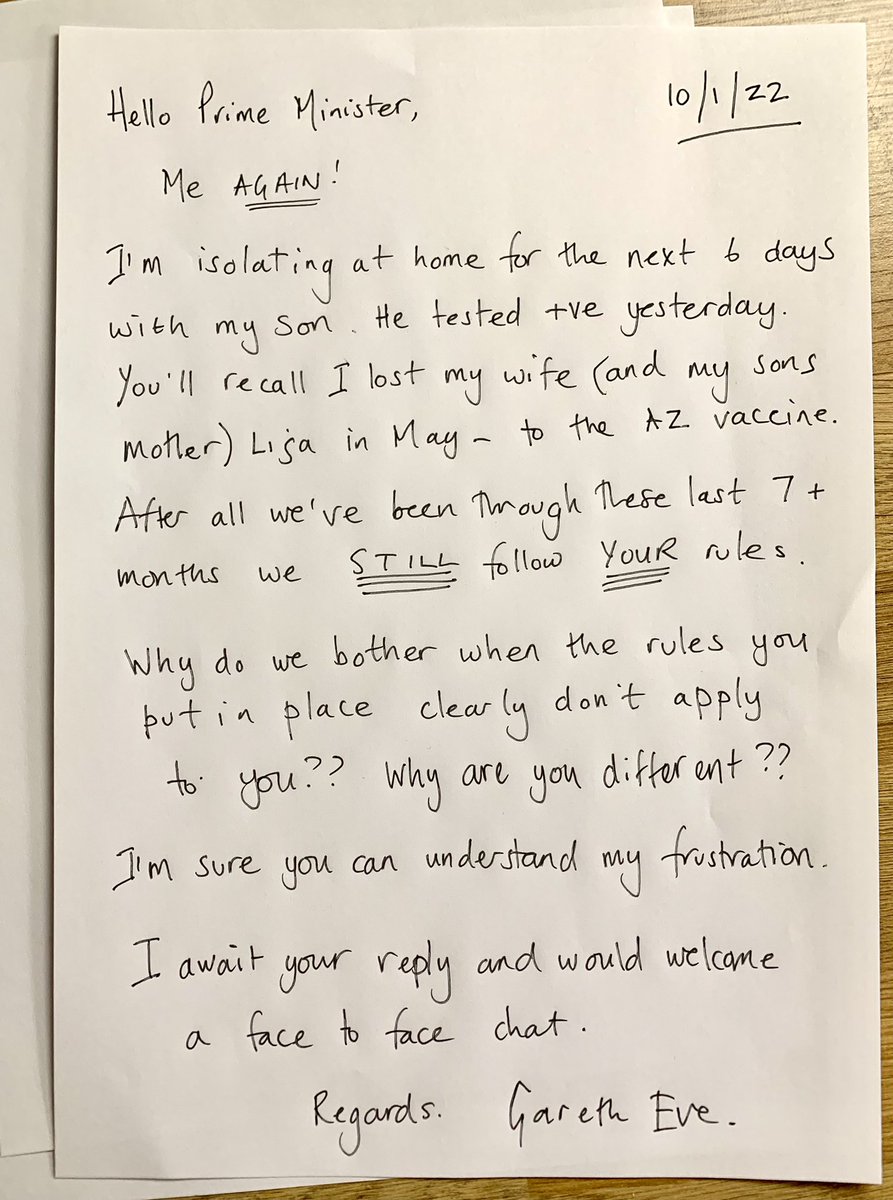 Hello Prime Minister,
10/1/22
Me AGAIN!
I'm isolating at home for the next 6 days
with my son. He tested +ve yesterday.
You'll recall I lost my wife (and my sons
mother) Lisa in May - to the AZ vaccine.
After all we've been through these last 7+
months we STILL follow YOUR rules.
Why do we bother when the rules you
put in place clearly don't apply
to you?? Why are you different??
I'm sure you can understand my frustration.
I await your reply and would welcome
a face to face chat.
Regards. Gareth Eve.